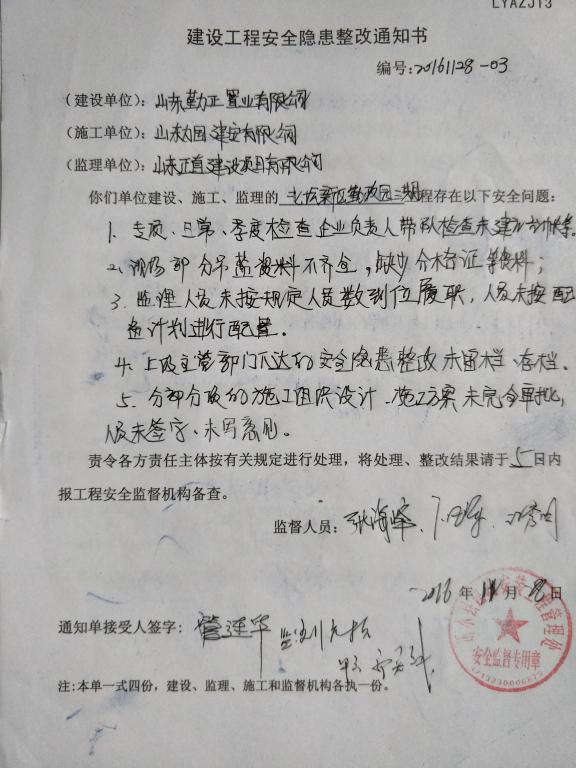 LYAZJ13
建设工程安全隐患整改通知书
编号:20161128-03
(建设单位): 山东勤正置业有限公司
(施工单位): 山东 建安有限公司
(监理单位): 山东正直建设项目有限公司
你们单位建设、施工、监理的 程存在以下安全问题:
1、专项、日常、季度检查企业负责人带队检查未建
2、现场部分吊篮资料不齐全,缺少合格证等资料;
3、监理人员未按规定人员数到位履职,人员未按配
备计划进行配置。
4、上级主管部门下达的安全隐患整改未留档、存档。
5、分部分项的施工组织设计、施工方案未完全审批,
人员未签字、未写意见。
责令各方责任主体按有关规定进行处理,将处理、整改结果请于5日内
报工程安全监督机构备查。
监督人员: 张海峰、
2016年11月 日
通知单接受人签字: 管连华
安全监督专用章
注:本单一式四份,建设、监理、施工和监督机构各执一份。